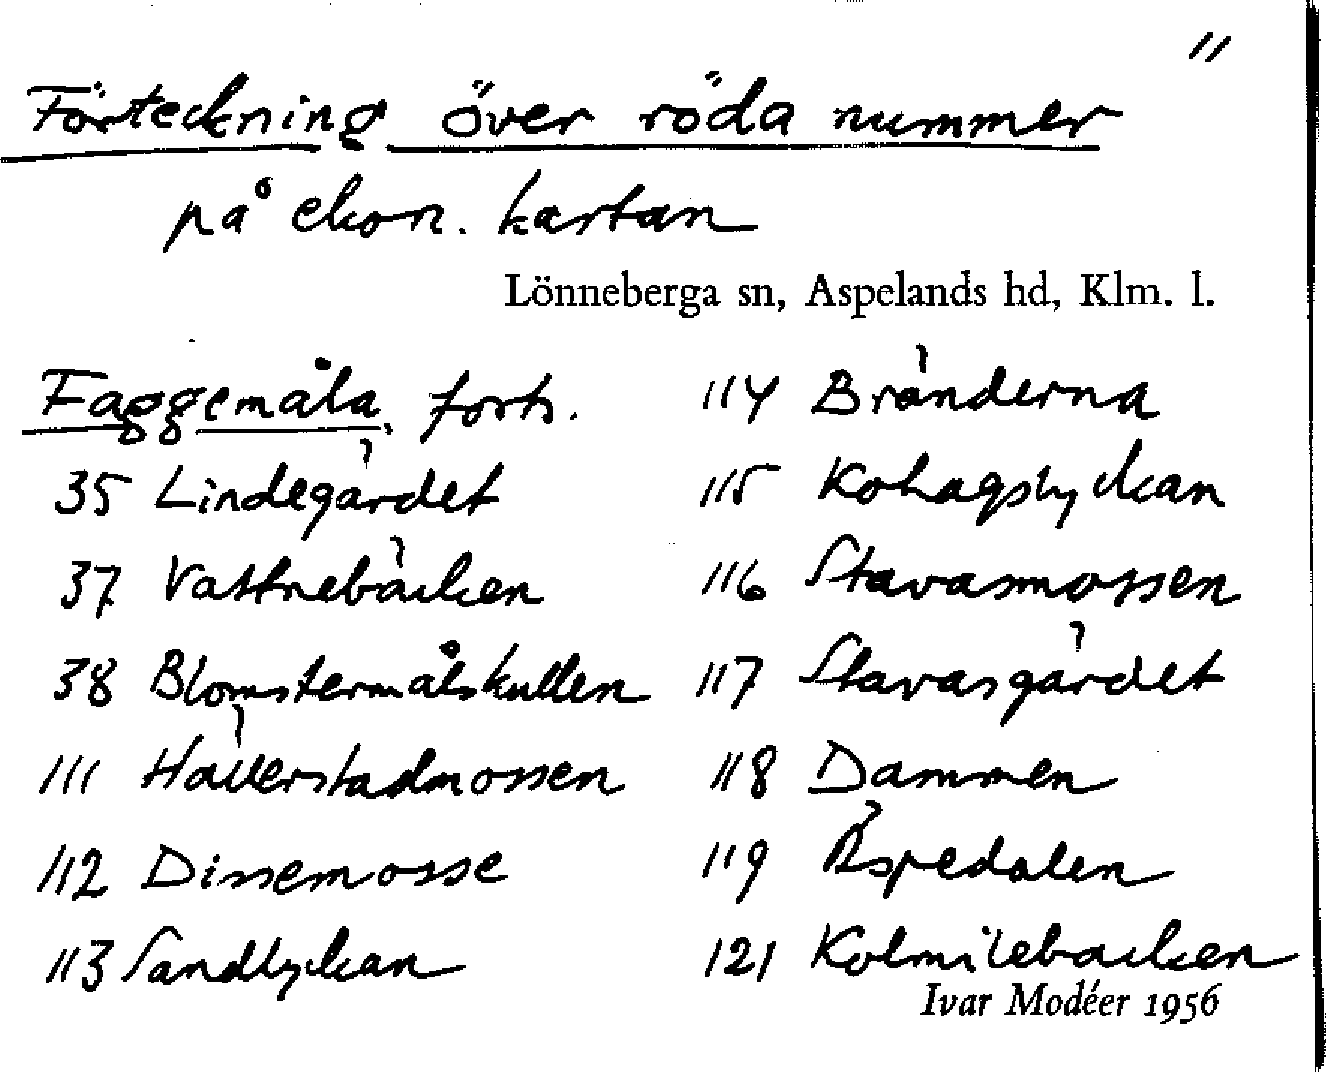 11
Förteckning över röda nummer
på ekon. kartan
Lönneberga sn, Aspelands hd, Klm. l.
Faggemåla, forts.
35 Lindegärdet
37 Vattnebäcken
38 Blomstermålskullen
111 Hällerstadmossen
112 Dissemosse
113 Sandlyckan
114 Bränderna
115 Kohagslyckan
116 Stavasmossen
117 Stavasgärdet
118 Dammen
119 Äspedalen
121 Kolmilebacken
Ivar Modéer 1956